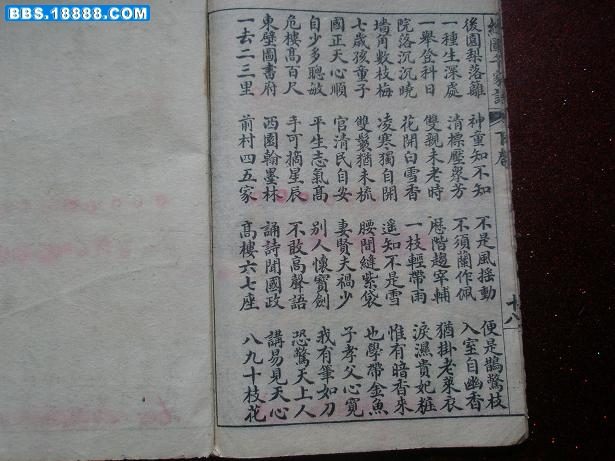 BBS.18888.COM
繪圖千家詩 下卷 十八
後園梨落離 神重知不知 不是風搖動 便是鵲驚枝
一種生深處 清標壓衆芳 不須蘭作佩 入室自幽香
一舉登科日 雙親未老時 歷階趨宰輔 猶掛老萊衣
院落沉沉曉 花開白雪香 一枝輕帶雨 淚濕貴妃粧
墻角數枝梅 凌寒獨自開 遥知不是雪 惟有暗香來
七歲孩童子 雙鬟猶未梳 腰間縫紫袋 也學帶金魚
國正天心順 官清民自安 妻賢夫禍少 子孝父心寬
自少多聰敏 平生志氣髙 別人懷寶劍 我有筆如刀
危樓髙百尺 手可摘星辰 不敢高聲語 恐驚天上人
東壁圖書府 西園翰墨林 誦詩聞國政 講易見天心
一去二三里 前村四五家 髙樓六七座 八九十枝花